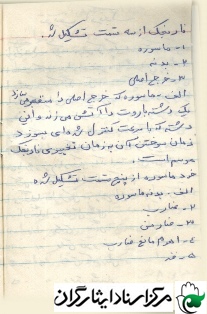 نارنجک از سه قسمت تشکیل شد.
۱- ماسوره
۲- بدنه
۳- خرج اصلی
الف- ماسوره که خرج اصلی را منفجر می سازد
یک دسته باروت را آتش می زند و آن
که با سرعت کنترل شده ای میسوزد
زمان سوختن آن به زمان تأخیری نارنجک
موسوم است.
خود ماسوره از پنج قسمت تشکیل شده
الف- بدنه ماسوره
۲- ضارب
۳- ضامن
۴- اهرم مانع ضارب
۵- فنر
مرکز اسناد ایثارگران